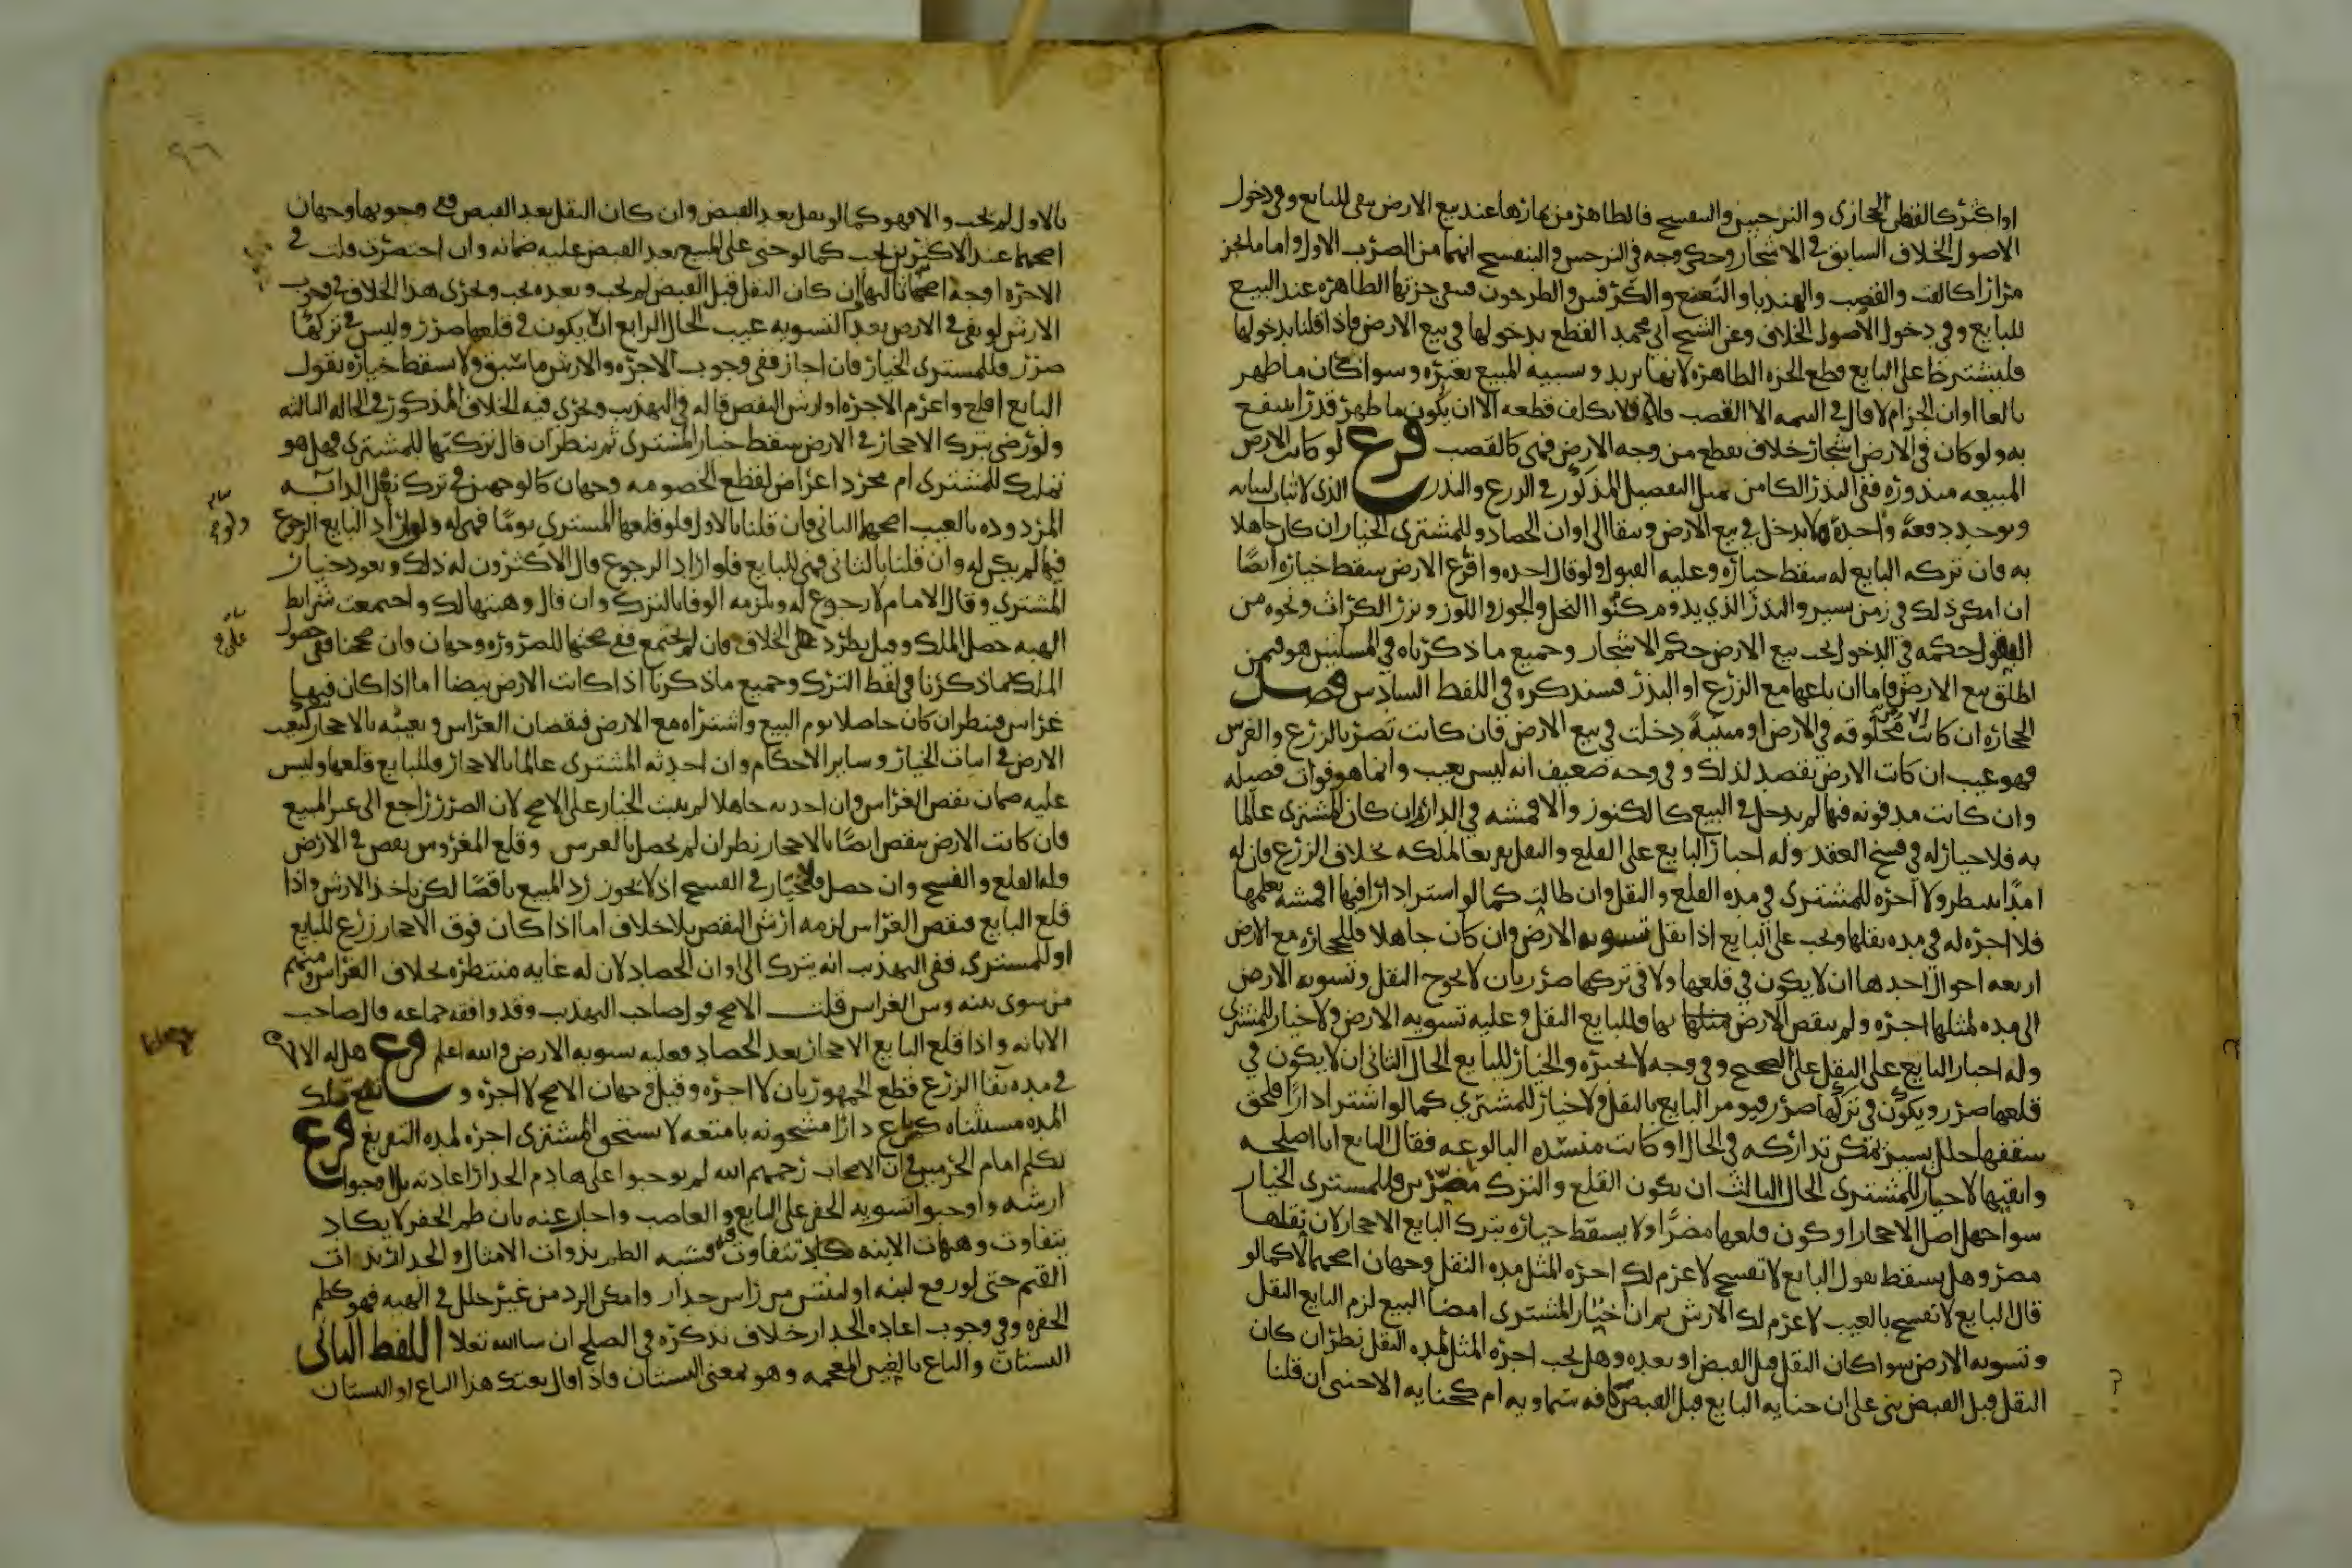 او اكثر كالقطن الحجازي والنرجس والبنفسج فالظاهر من ثمارها عند بيع الارض يبقى للبايع وفي دخول
الاصول الخلاف السابق في الاشجار وحكى وجه في النرجس والبنفسج انهما من الضرب الاول واما ما يجز
مرارا كالقت والقصب والهندبا والنعنع والكرفس والطرخون فتبقى جزتها الظاهره عند البيع
للبايع وفي دخول الاصول الخلاف وعن الشيخ ابي محمد القطع بدخولها في بيع الارض فاذا قلنا بدخولها
فليشترط على البايع قطع الجزه الظاهره لانها تزيد وتشتبه المبيع بغيره وسوا كان ما ظهر
بالغا اوان الجز ام لا قال في التتمه الا القصب فلا يكلف قطعه الا ان يكون ما ظهر قدرا ينتفع
به ولو كان في الارض اشجار خلاف تقطع من وجه الارض فهي كالقصب فرع لو كانت الارض
المبيعه مبذوره ففي البذر الكامن مثل التفصيل المذكور في الزرع والبذر الذي لا ثبات لنباته
ويوخذ دفعة واحدة لا يدخل في بيع الارض ويبقا الى اوان الحصاد وللمشتري الخيار ان كان جاهلا
به فان تركه البايع له سقط خياره وعليه القبول ولو قال اخذه وافرغ الارض سقط خياره ايضا
ان امكن ذلك في زمن يسير والبذر الذي يدوم كنوا النخل والجوز واللوز وبزر الكراث ونحوه من
البقول حكمه في الدخول تحت بيع الارض حكم الاشجار وجميع ما ذكرناه في المسلتين هو فيمن
اطلق بيع الارض فاما ان باعها مع الزرع او البذر فسنذكره في اللفظ السادس فصل
الحجاره ان كانت مخلوقه في الارض او مبنية دخلت في بيع الارض فان كانت تضر بالزرع والغرس
فهو عيب ان كانت الارض تقصد لذلك وفي وجه ضعيف انه ليس بعيب وانما هو فوات فضيله
وان كانت مدفونه فيها لم يدخل في البيع كالكنوز والاقمشه في الدار ثم ان كان المشتري عالما
به فلا خيار له في فسخ العقد وله اجبار البايع على القلع والنقل تفريغا لملكه بخلاف الزرع فان له
امدا ينتظر ولا اجره للمشتري في مده القلع والنقل وان طالت كما لو اشترا دارا فيها اقمشه يعلمها
فلا اجره له في مده نقلها ويجب على البايع اذا نقل تسويه الارض وان كان جاهلا فللحجاره مع الارض
اربعه احوال احدها ان لا يكون في قلعها ولا في تركها ضرر بان لا يحوج النقل وتسويه الارض
الى مده لمثلها اجره ولم تنقص الارض بها فللبايع النقل وعليه تسويه الارض ولا خيار للمشتري
وله اجبار البايع على النقل على الصحيح وفي وجه لا يجبره والخيار للبايع الحال الثاني ان لا يكون في
قلعها ضرر ويكون في تركها ضرر فيومر البايع بالنقل ولا خيار للمشتري كما لو اشترا دارا فلحق
سقفها خلل يسير يمكن تداركه في الحال او كانت منسده البالوعه فقال البايع انا اصلحه
وانقيها لا خيار للمشتري الحال الثالث ان يكون القلع والترك مضرين فللمشتري الخيار
سوا جهل اصل الاحجار او كون قلعها مضرا ولا يسقط خياره بترك البايع الاحجار لان بقاها
مضر وهل يسقط بقول البايع لا تفسخ لاغرم لك اجره المثل مده النقل وجهان اصحهما لا كما لو
قال البايع لا تفسخ بالعيب لاغرم لك الارش ثم ان اختار المشتري امضا البيع لزم البايع النقل
وتسويه الارض سوا كان النقل قبل القبض او بعده وهل يجب اجره المثل لمده النقل نظر ان كان
النقل قبل القبض بني على ان جنايه البايع قبل القبض كافه سماويه ام كجنايه الاجنبي ان قلنا
بالاول لم يجب والا فهو كما لو نقل بعد القبض وان كان النقل بعد القبض ففي وجوبها وجهان
اصحهما عند الاكثرين يجب كما لو جنى على المبيع بعد القبض عليه ضمانه وان اختصرت قلت في
الاجره اوجه اصحها ثالثها ان كان النقل قبل القبض لم يجب وبعده يجب ويجري هذا الخلاف في وجوب
الارش لو بقي في الارض بعد التسويه عيب الحال الرابع ان يكون في قلعها ضرر وليس في تركها
ضرر فللمشتري الخيار فان اجاز ففي وجوب الاجره والارش ما سبق ولا يسقط خياره بقول
البايع اقلع واغرم الاجره او ارش النقص قاله في التهذيب ويجري فيه الخلاف المذكور في الحاله الثالثه
ولو رضي بترك الاحجار في الارض سقط خيار المشتري ثم ينظر ان قال تركتها للمشتري فهل هو
تمليك للمشتري ام مجرد اعراض لقطع الخصومه وجهان كالوجهين في ترك نعل الدابه
المردوده بالعيب اصحهما الثاني فان قلنا بالاول فلو قلعها المشتري يوما فهي له ولو اراد البايع الرجوع
فيها لم يكن له وان قلنا بالثاني فهي للبايع فلو اراد الرجوع قال الاكثرون له ذلك ويعود خيار
المشتري وقال الامام لا رجوع له ويلزمه الوفا بالترك وان قال وهبتها لك واجتمعت شرايط
الهبه حصل الملك وقيل بطرد الخلاف فان لم تجتمع ففي صحتها للضروره وجهان وان صححنا ففي حصول
الملك ما ذكرنا في لفظ الترك وجميع ما ذكرنا اذا كانت الارض بيضا اما اذا كان فيها
غراس فينظر ان كان حاصلا يوم البيع واشتراه مع الارض فنقصان الغراس وتعيبه بالاحجار كتعيب
الارض في اثبات الخيار وساير الاحكام وان احدثه المشتري عالما بالاحجار فللبايع قلعها وليس
عليه ضمان نقص الغراس وان احدثه جاهلا لم يثبت الخيار على الاصح لان الضرر راجع الى غير المبيع
فان كانت الارض تنقص ايضا بالاحجار نظر ان لم يحصل بالغرس وقلع المغروس نقص في الارض
فله القلع والفسخ وان حصل فلا خيار في الفسخ اذ لا يجوز رد المبيع ناقصا لكن ياخذ الارش واذا
قلع البايع فنقص الغراس لزمه ارش النقص بلا خلاف اما اذا كان فوق الاحجار زرع للبايع
او للمشتري ففي التهذيب انه يترك الى اوان الحصاد لان له غايه منتظره بخلاف الغراس ومنهم
من سوى بينه وبين الغراس قلت الاصح قول صاحب التهذيب وقد وافقه جماعه قال صاحب
الابانه واذا قلع البايع الاحجار بعد الحصاد فعليه تسويه الارض والله اعلم فرع هل له الاجره
في مده بقا الزرع قطع الجمهور بان لا اجره وقيل وجهان الاصح لا اجره وتقع تلك
المده مستثناه كمن باع دارا مشحونه بامتعه لا يستحق المشتري اجره لمده التفريغ فرع
تكلم امام الحرمين في ان الاصحاب رحمهم الله لم يوجبوا على هادم الجدار اعادته بل اوجبوا
ارشه واوجبوا تسويه الحفر على البايع والغاصب واجاب عنه بان طم الحفر لا يكاد
يتفاوت وهيات الابنيه تتفاوت فشبه الطم بذوات الامثال والجدار بذوات
القيم حتى لو رفع لبنه او لبنتين من راس جدار وامكن الرد من غير خلل في الهيه فهو كطم
الحفره وفي وجوب اعاده الجدار خلاف نذكره في الصلح ان شا الله تعالا اللفظ الثاني
البستان والباغ بالغين المعجمه وهو بمعنى البستان فاذا قال بعتك هذا الباغ او البستان